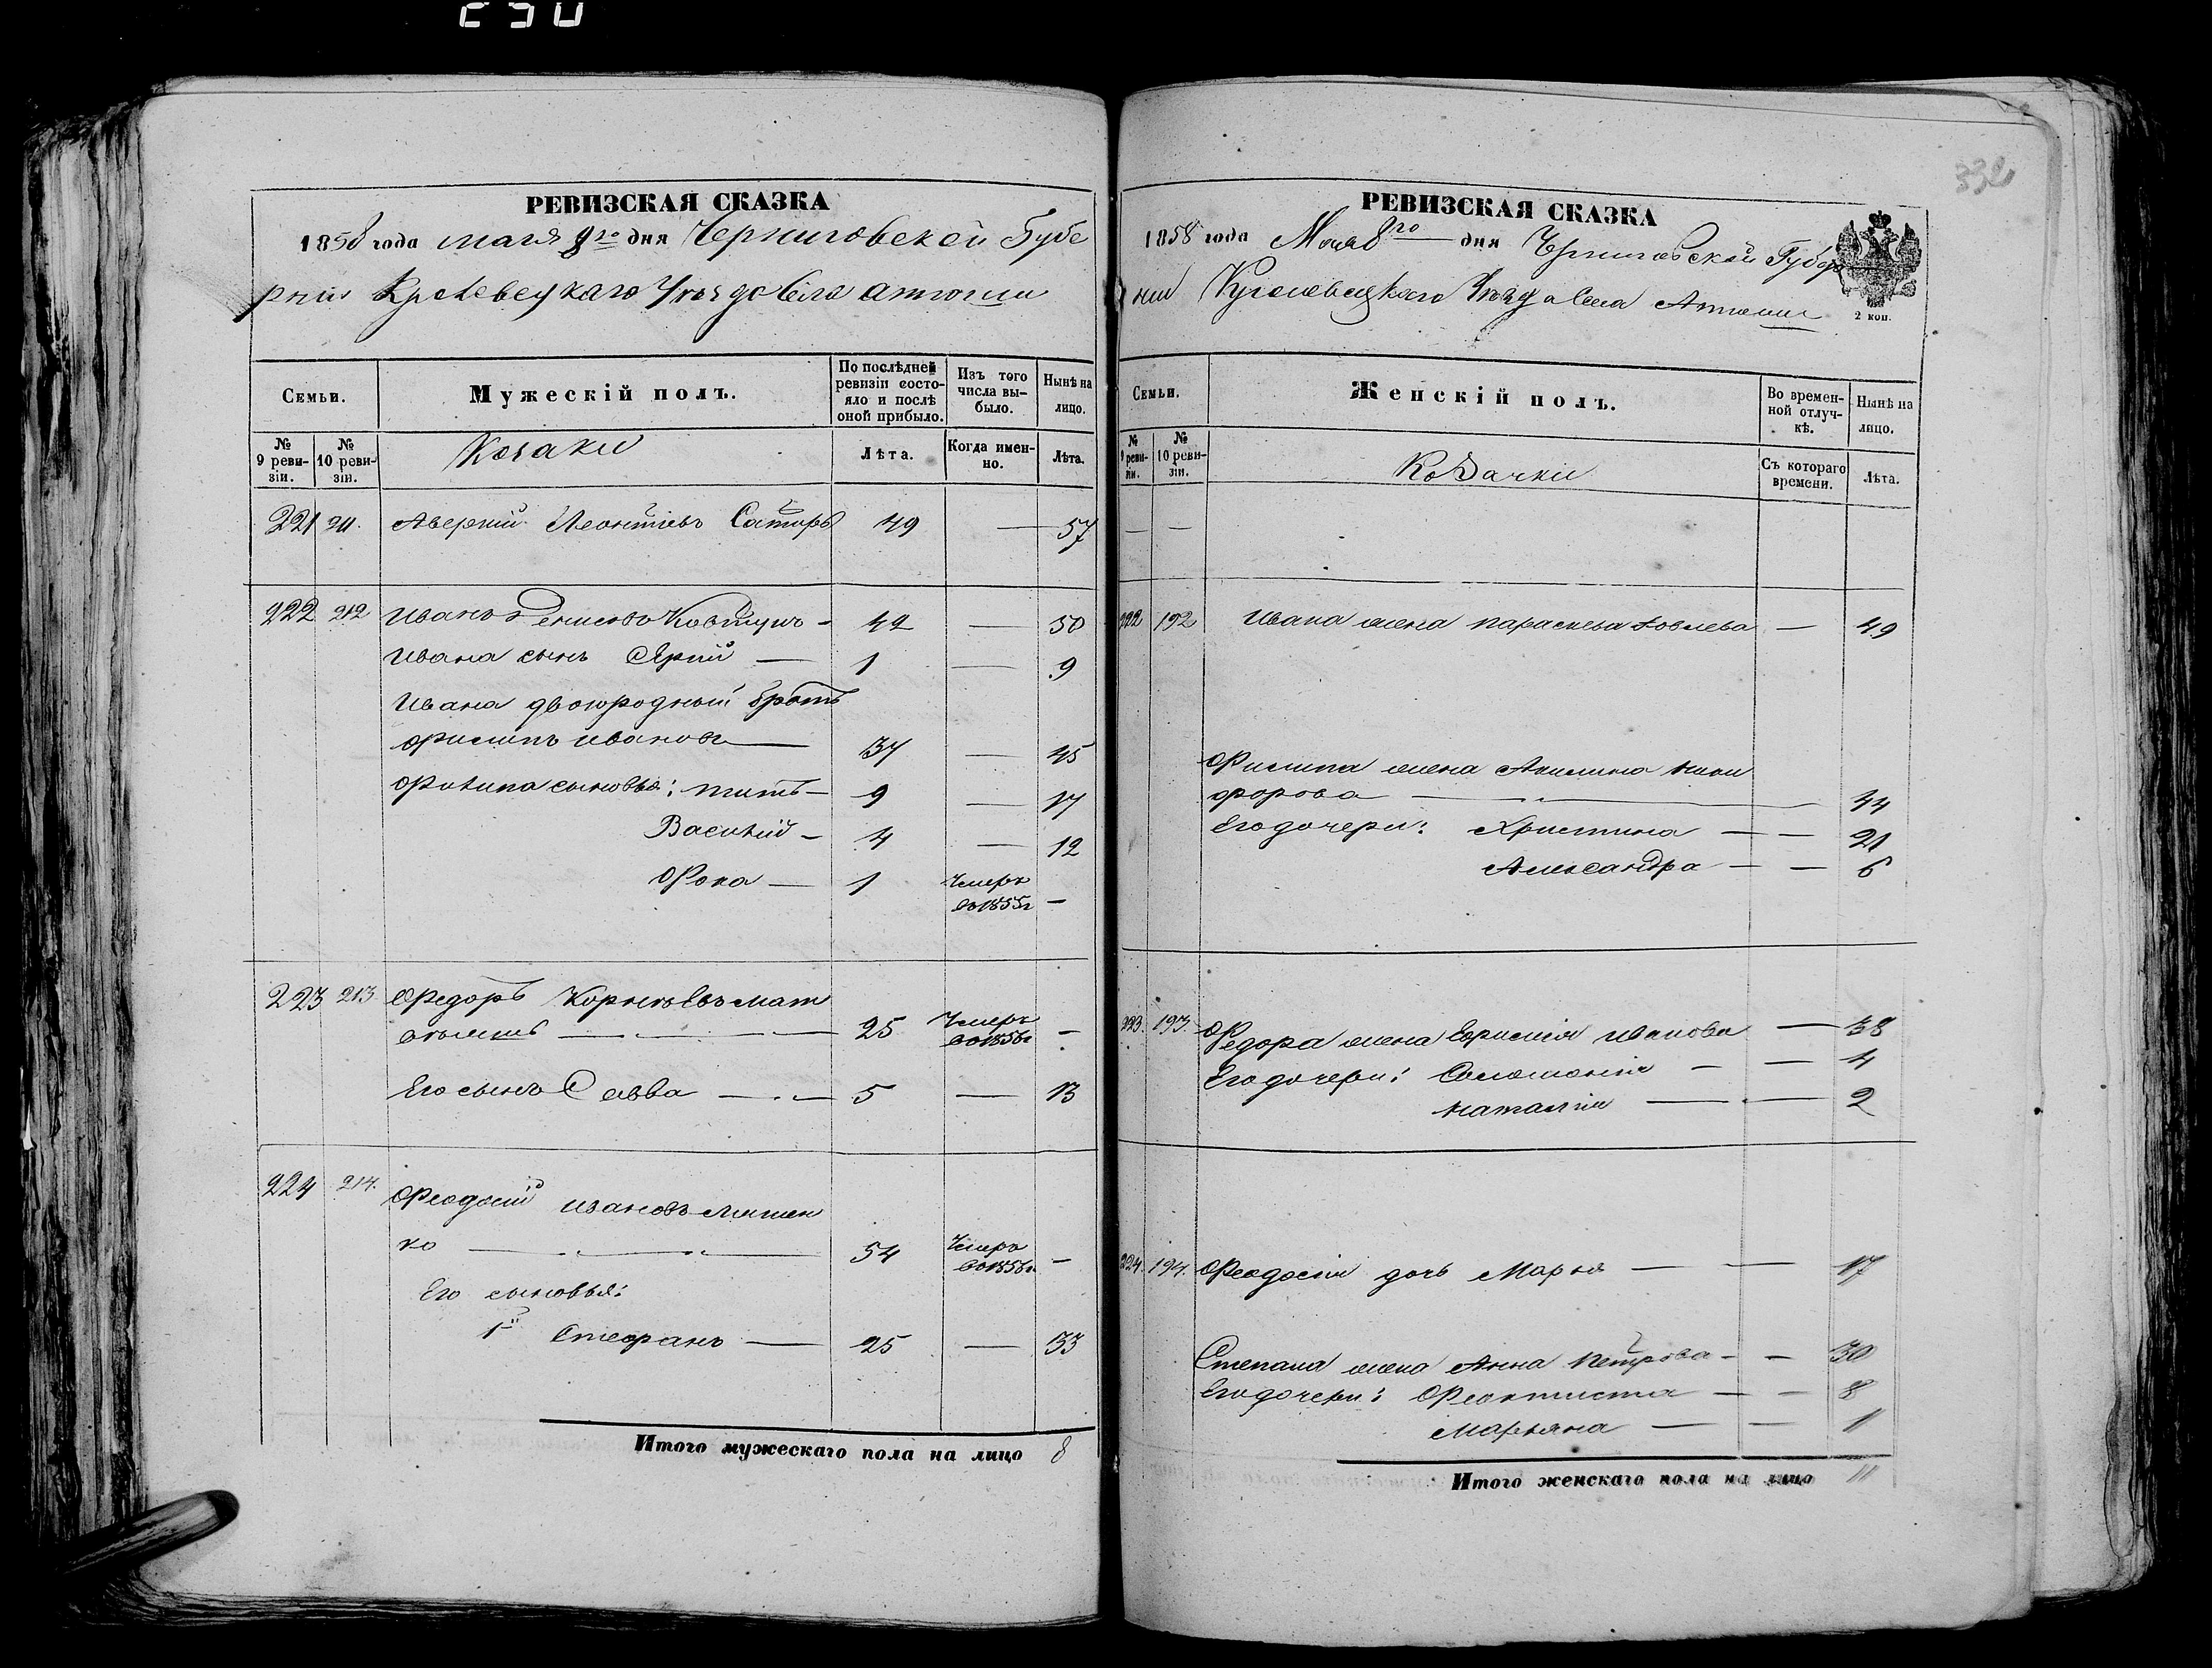 230
РЕВИЗСКАЯ СКАЗКА
1858 года мая 8го дня Черниговской Губе
рніи Кролевецкаго Уезда Села Атюши
Семьи.
Мужескій полъ.
По послѣдней ревизіи состояло и послѣ оной прибыло.
Изъ того числа выбыло.
Нынѣ на лицо.
№ 9 ревизіи.
№ 10 ревизіи.
Козаки
Лѣта.
Когда именно.
Лѣта.
221 211. Аверкій Леонтіевъ 49 — 57
222 212 Иванъ Денисовъ Ковтунъ - 42 — 50
Ивана сынъ — 1 — 9
Ивана двоюродный братъ
Филипъ Ивановъ — 37 — 45
Филипа сыновья: Титъ — 9 — 17
Василій - 4 — 12
Фока — 1 Умеръ
въ 1855г —
223 213 Федоръ Корнѣевъ Мат
— 25 Умеръ
въ 1856г —
Его сынъ Савва — 5 — 13
224 214. Феодосій Ивановъ
ко — 54 Умеръ
въ 1856г —
Его сыновья:
1й Стефанъ — 25 — 33
Итого мужескаго пола на лицо 8
332
РЕВИЗСКАЯ СКАЗКА
1858 года Мая 8го дня Черниговской Губер
ніи Кролевецкаго Уезда Села Атюши
2 коп.
Семьи.
Женскій полъ.
Во временной отлучкѣ.
Нынѣ на лицо.
№ 9 ревизіи.
№ 10 ревизіи.
Козачки
Съ котораго времени.
Лѣта.
— —
222 192 Ивана жена Параскева Іовлева — 49
Филипа жена Акилина Ники
форова — 44
Его дочери: Христина — — 21
Александра — — 6
223. 193. Федора жена Ефимія Иванова — 38
Его дочери: Соломонія - — 4
Наталія — — 2
224. 194. Феодосія дочь Марья — — 17
Степана жена Анна Петрова - - 30
Его дочери: Феоктиста — — 8
Марьяна — — 1
Итого женскаго пола на лицо 11